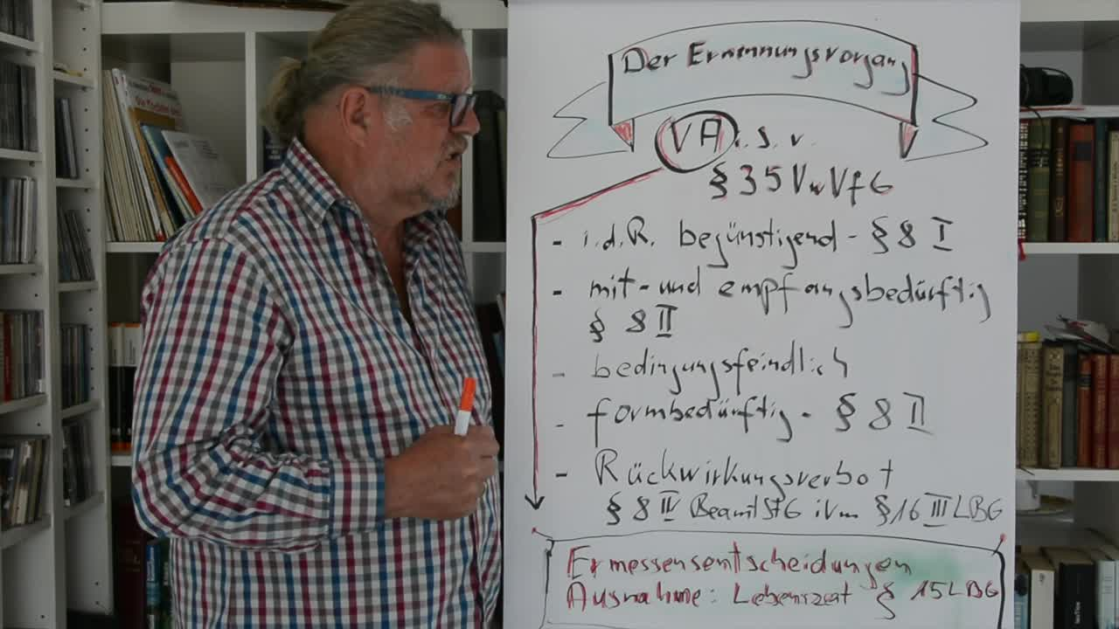 Der Ernennungsvorgang
VA i. S. v.
§ 35 VwVfG
- i.d.R. begünstigend - § 8 I
- mit- und empfangsbedürftig
§ 8 II
- bedingungsfeindlich
- formbedürftig - § 8 II
- Rückwirkungsverbot
§ 8 IV BeamtStG iVm § 16 III LBG
Ermessensentscheidungen
Ausnahme: Lebenszeit § 15 LBG